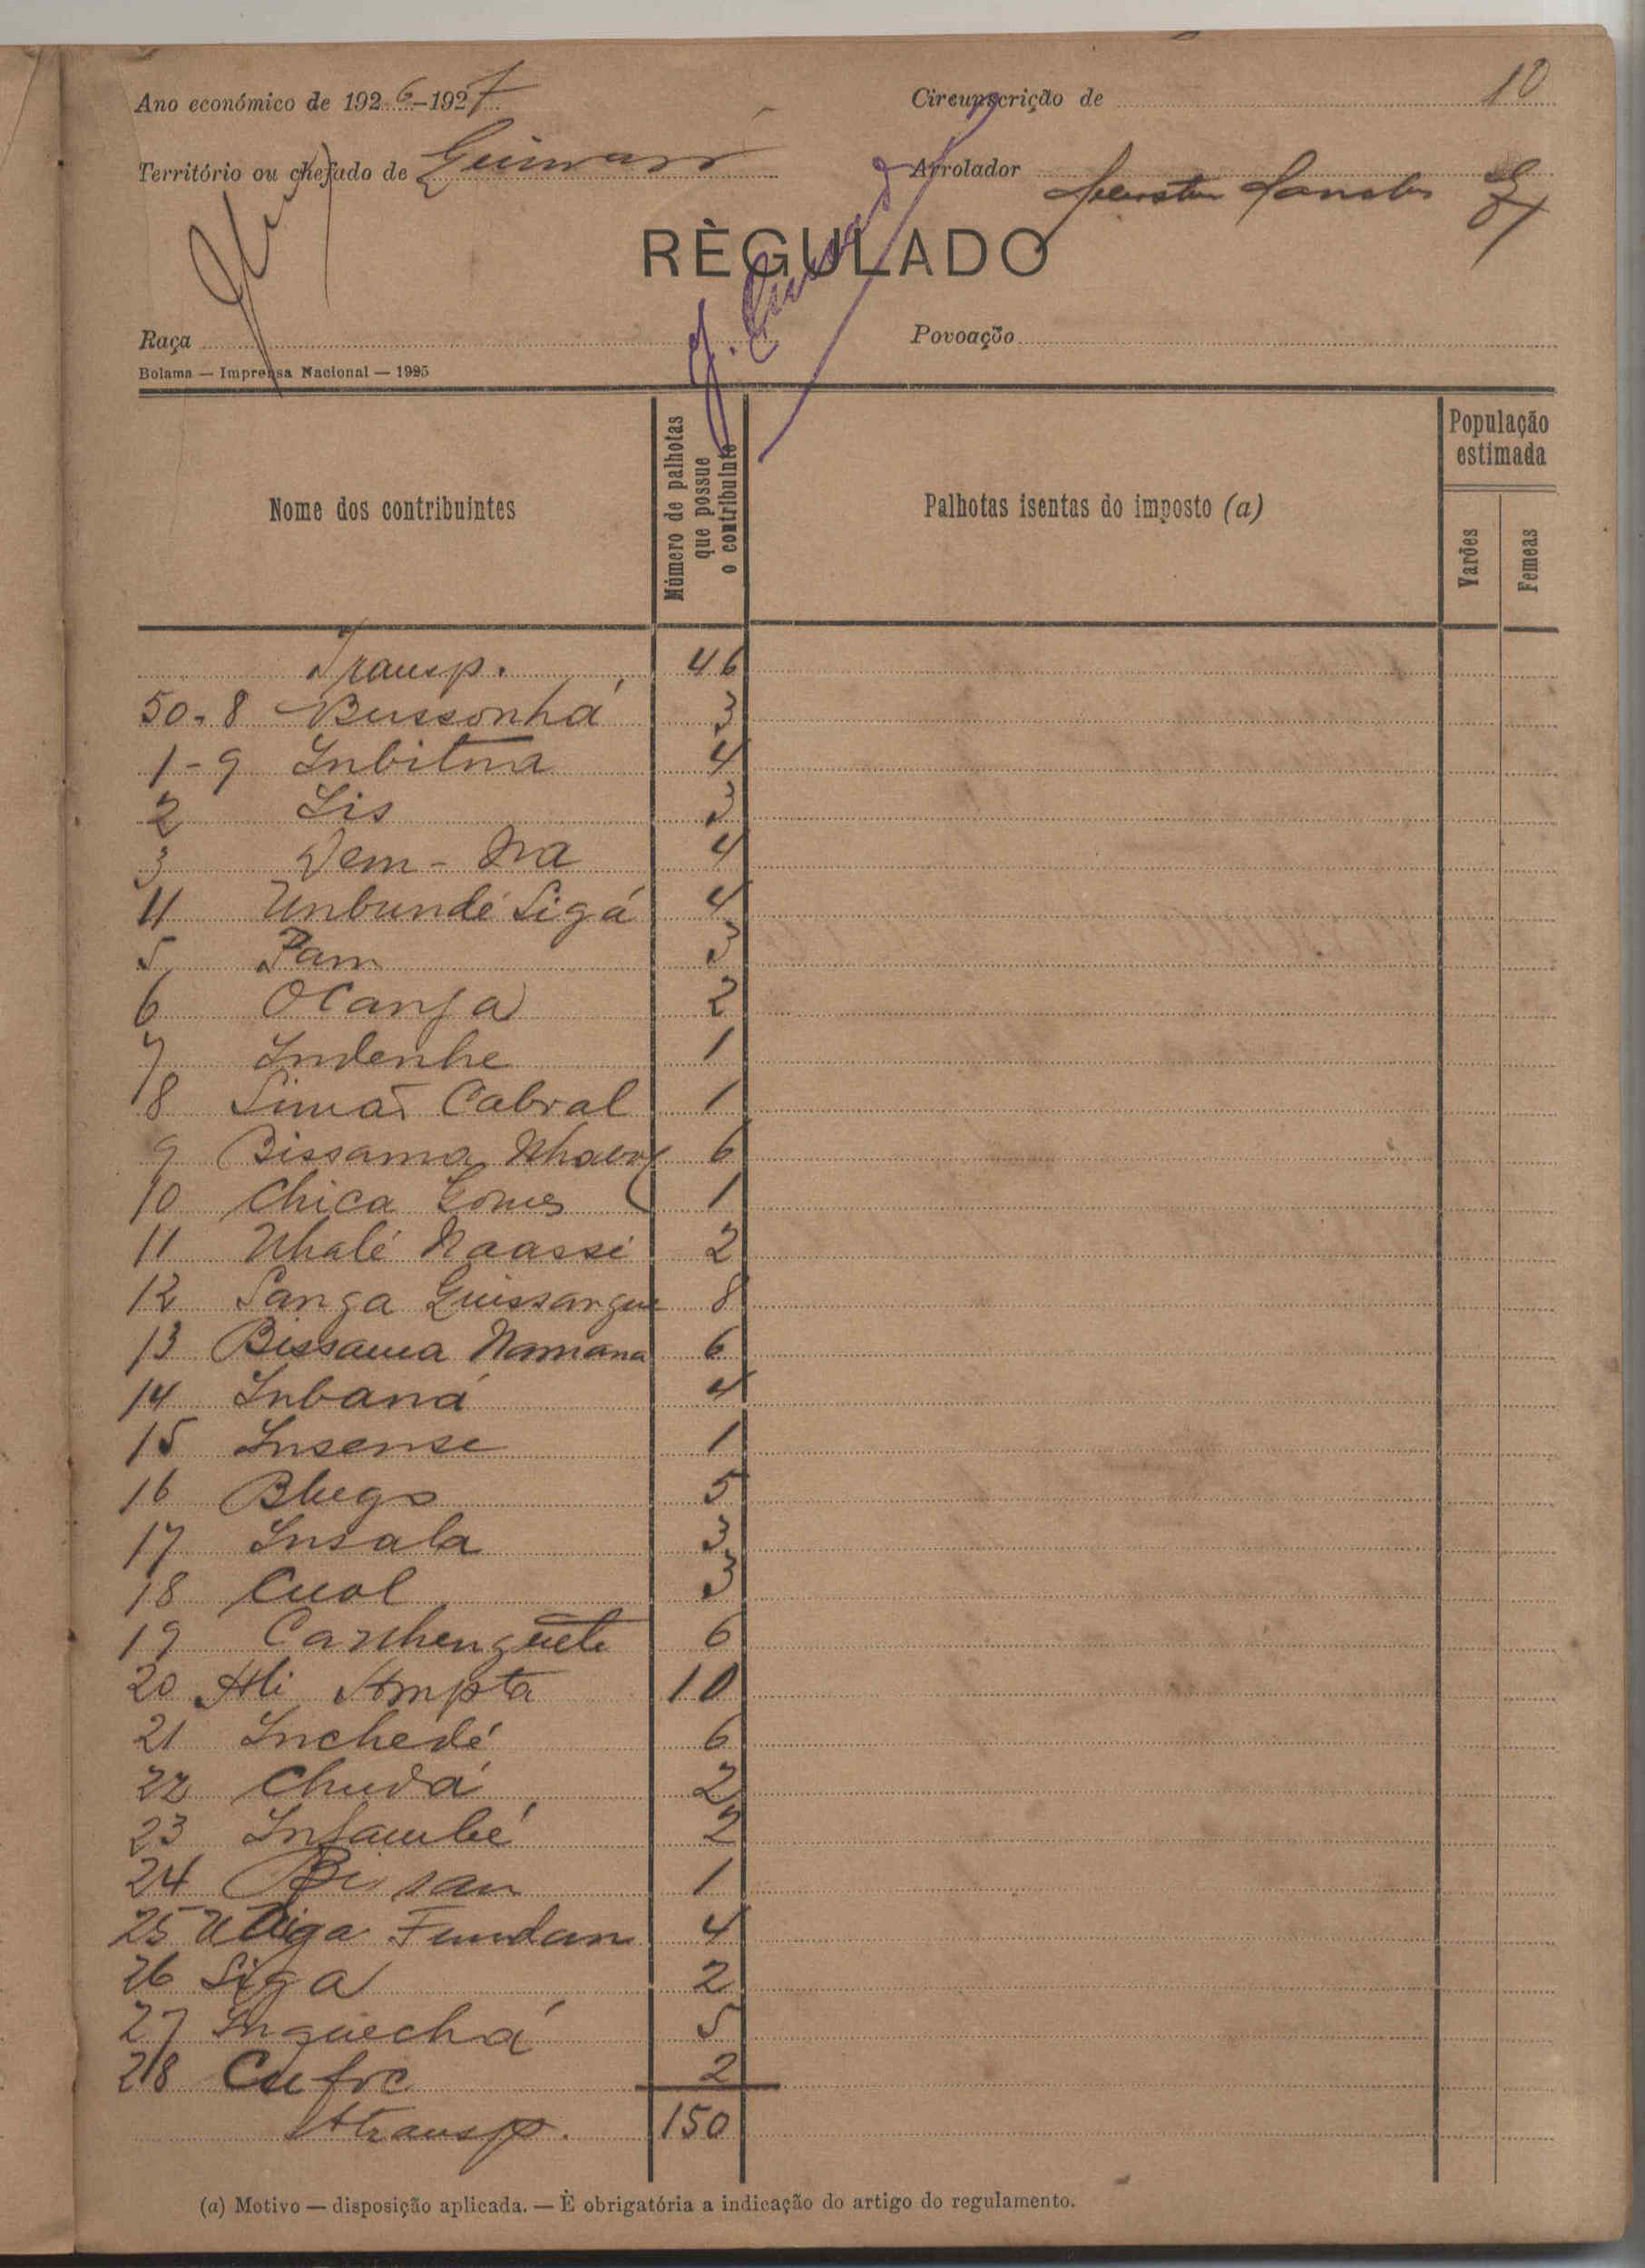 Ano económico de 1926-1927
Circunscrição de
10
Território ou chefado de
Arrolador
RÈGULADO
Raça
Povoação
Bolama — Imprensa Nacional — 1925
Nome dos contribuintes
Número de palhotas que possue o contribuinte
Palhotas isentas do imposto (a)
População estimada
Varões
Femeas
Transp. 46
50-8 Bussonhá 3
1-9 Inbitna 4
2 Sis 3
3 Dem-Na 4
4 Unbunde Sigá 4
5 Pam 3
6 Ocanfa 2
7 Indenhe 1
8 Simão Cabral 1
9 Bissama 6
10 Chica Gomes 1
11 Nhalé Naassé 2
12 Sanga Guissangue 8
13 Bissama Namana 6
14 Inbaná 4
15 Insense 1
16 5
17 Insala 3
18 Cuol 3
19 Canhenguete 6
20 Ali Ampta 10
21 Inchedé 6
22 Chudá 2
23 Infambé 2
24 Bissau 1
25 Fundam 4
26 Siga 2
27 Inquechá 5
28 Cufre 2
Atransp. 150
(a) Motivo — disposição aplicada. — È obrigatória a indicação do artigo do regulamento.